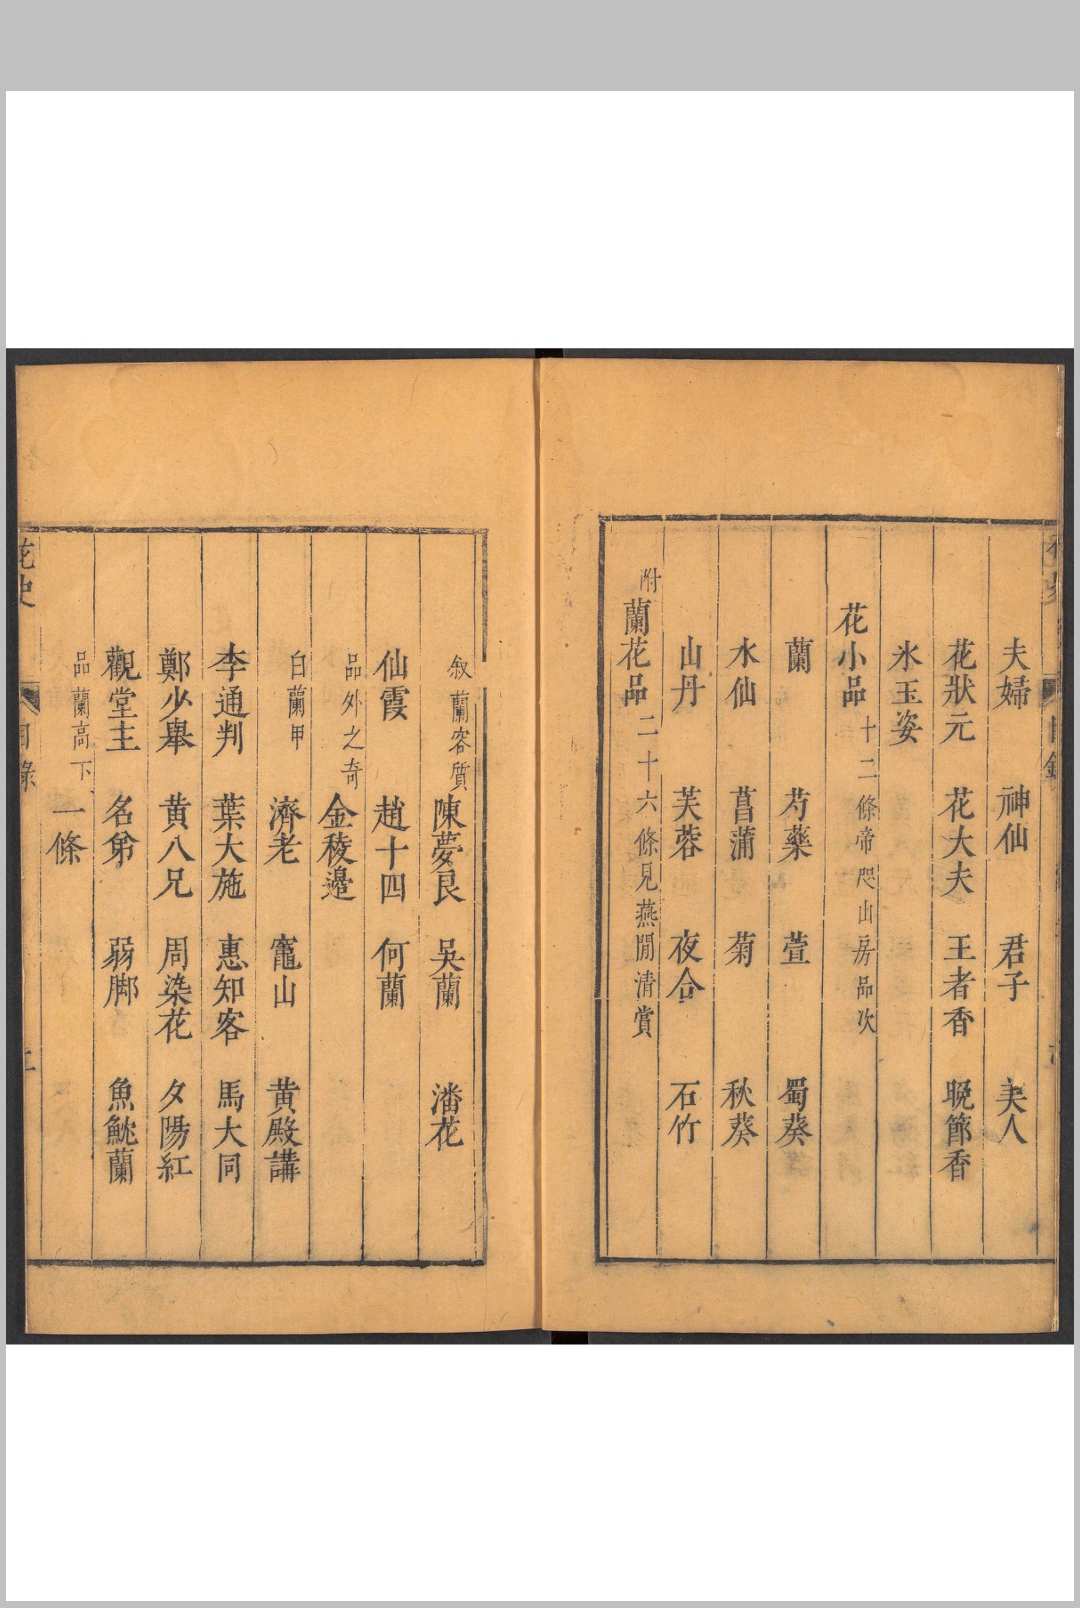 夫婦 神仙 君子 美人
花狀元 花大夫 王者香 晩節香
氷玉姿
花小品 十二條帝咫山房品次
蘭 芍藥 萱 蜀葵
水仙 菖蒲 菊 秋葵
山丹 芙蓉 夜合 石竹
附蘭花品 二十六條見燕閒清賞
叙蘭容質 陳夢良 吳蘭 潘花
仙霞 趙十四 何蘭
品外之奇 金稜邉
白蘭甲 濟老 竈山 黃殿講
李通判 葉大施 惠知客 馬大同
鄭少舉 黃八兄 周染花 夕陽紅
觀堂主 名弟 弱脚 魚魫蘭
品蘭高下 一條
花史 目錄